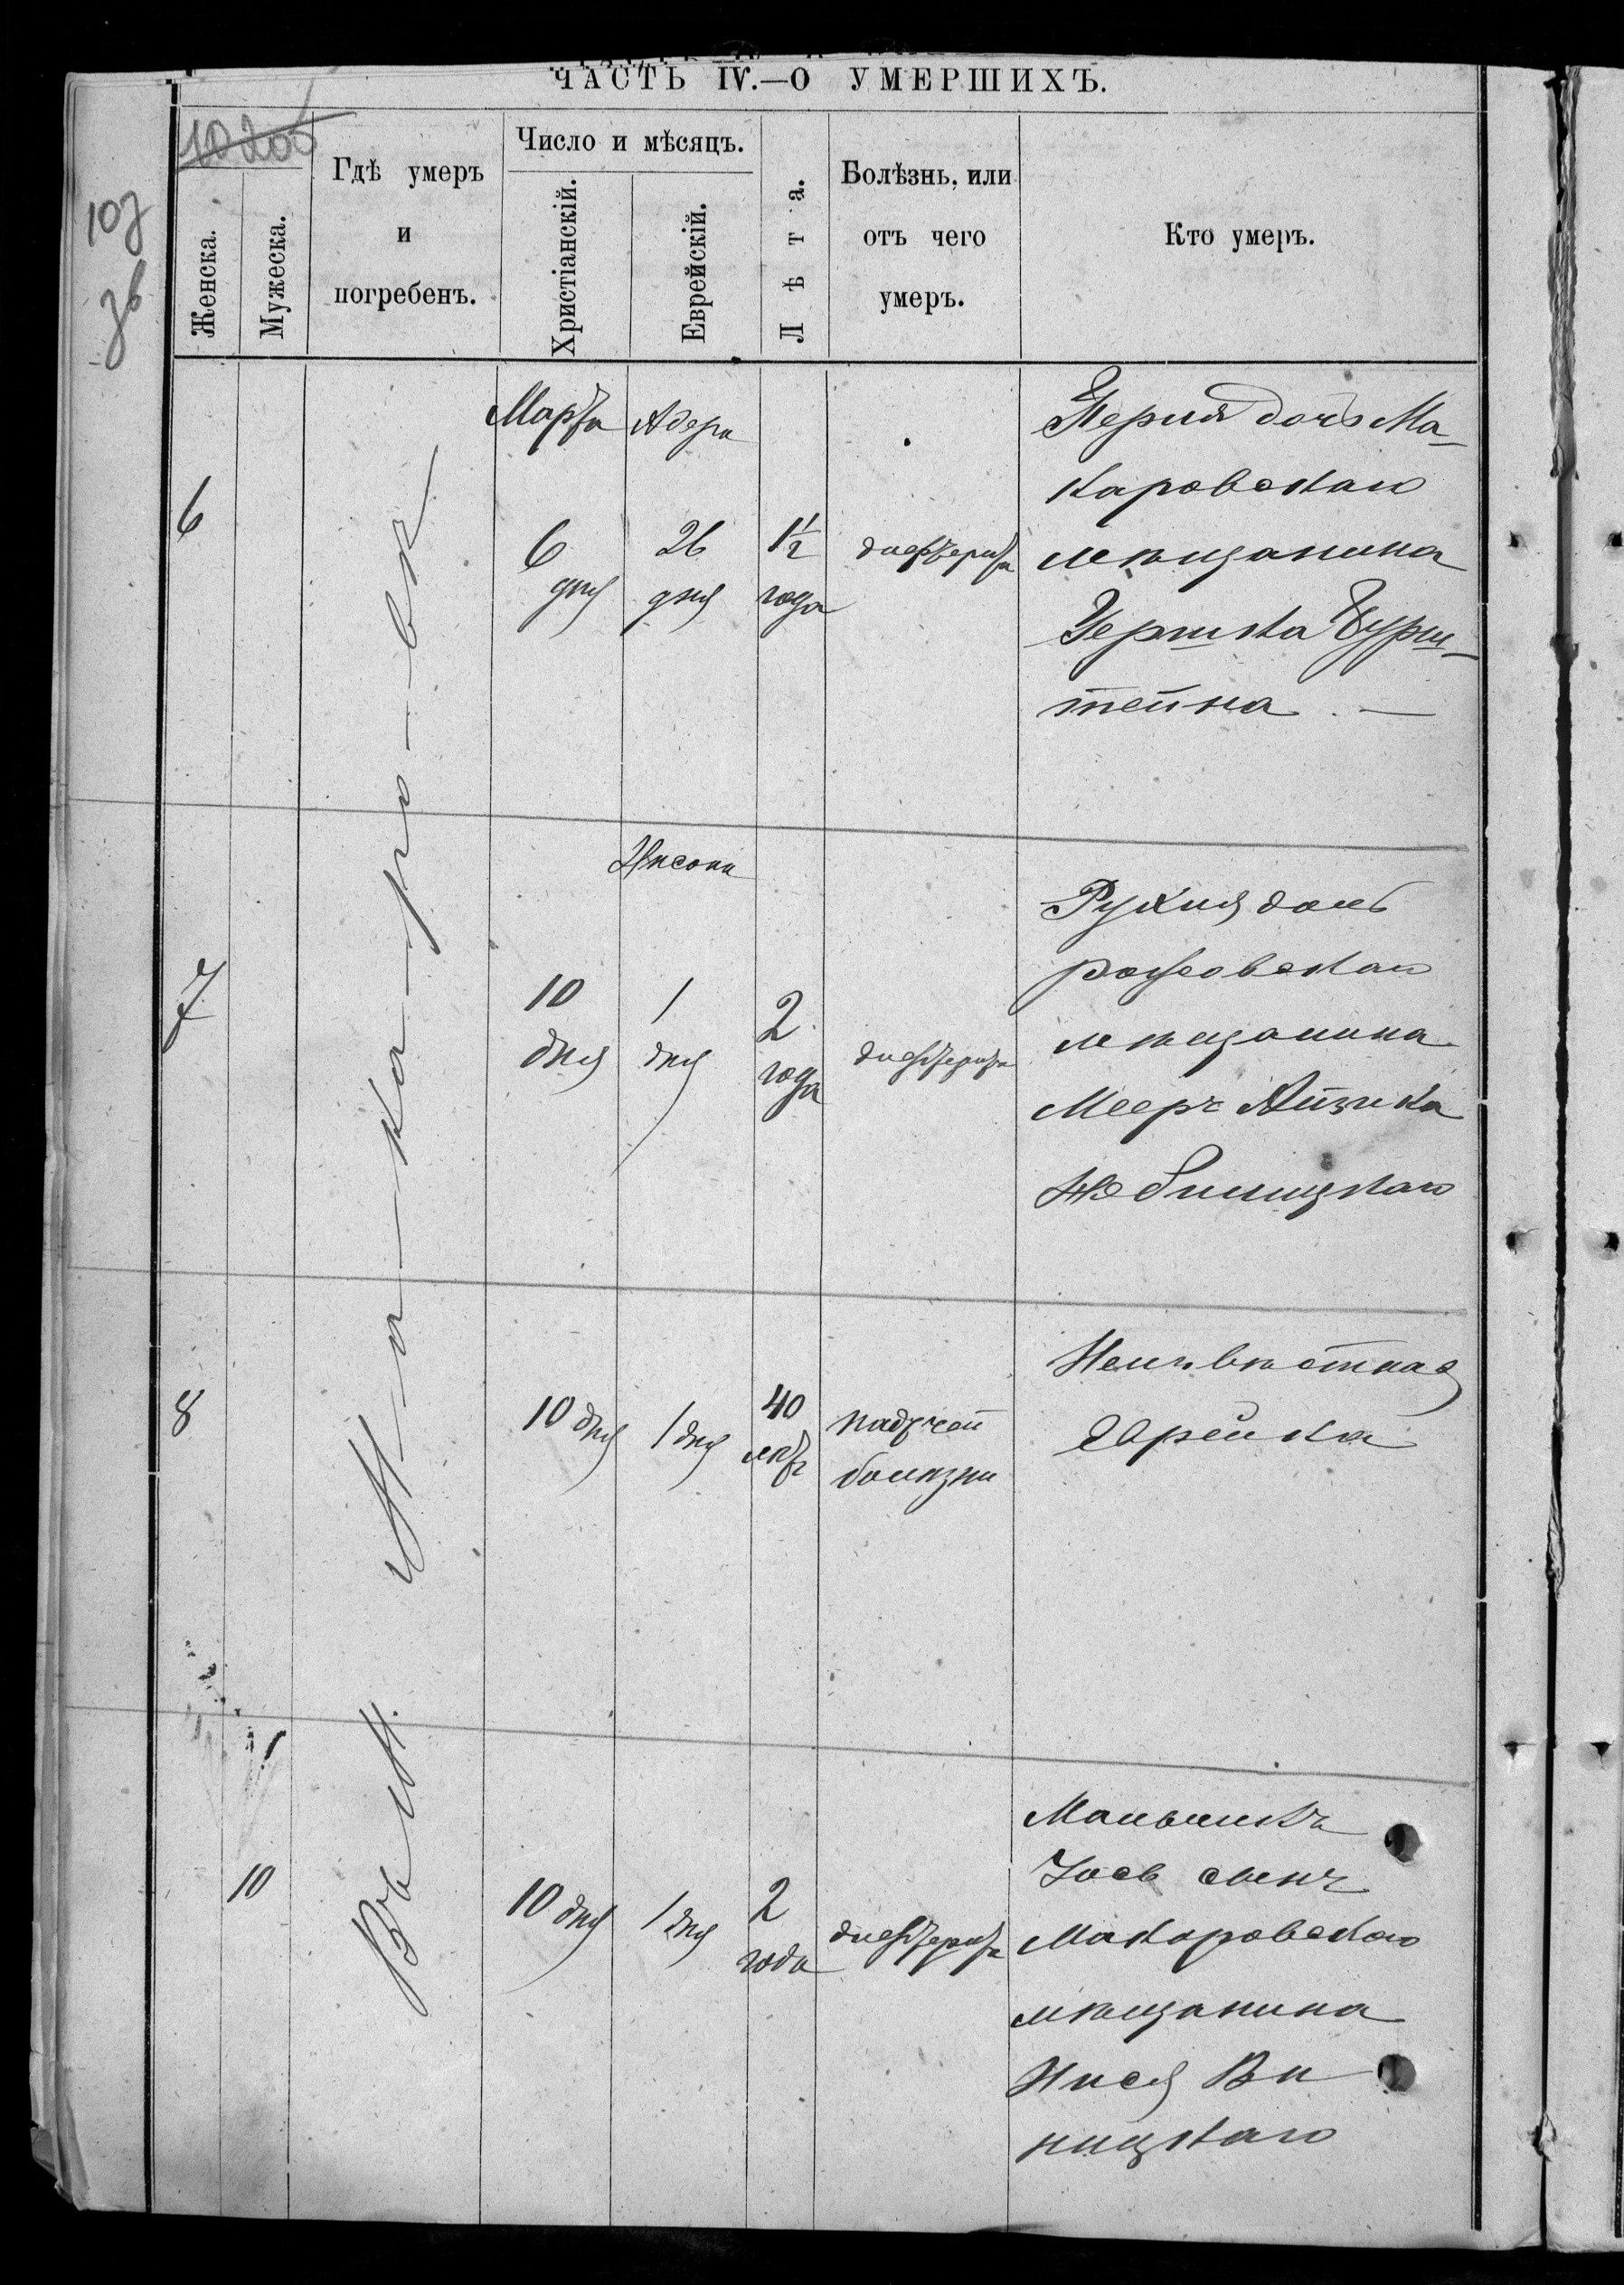 ЧАСТЬ IV.—О УМЕРШИХЪ.
10206
107
36
Женска.
Мужеска.
Гдѣ умеръ
и
погребенъ.
Число и мѣсяцъ.
Христіанскій.
Еврейскій.
Лѣта.
Болѣзнь, или
отъ чего
умеръ.
Кто умеръ.
Въ М. Ма-ка-ро-вѣ
Марта
Адера
6
6
дня
26
дня
1½
года
дифтерита
Перля дочь Ма-
каровскаго
мѣщанина
Гершка Бурш-
тейна. —
Нисона
7
10
дня
1
дня
2
года
дифтерита
Рухля дочь
мѣщанина
Мееръ Айзика
8
10 дня
1 дня
40
лѣтъ
падучей
болѣзни
Неизвѣстная
Еврейка
10
10 дня
1 дня
2
года
дифтерита
Мальчикъ
Іось сынъ
Макаровскаго
мѣщанина
Нисся Ви
ницкаго